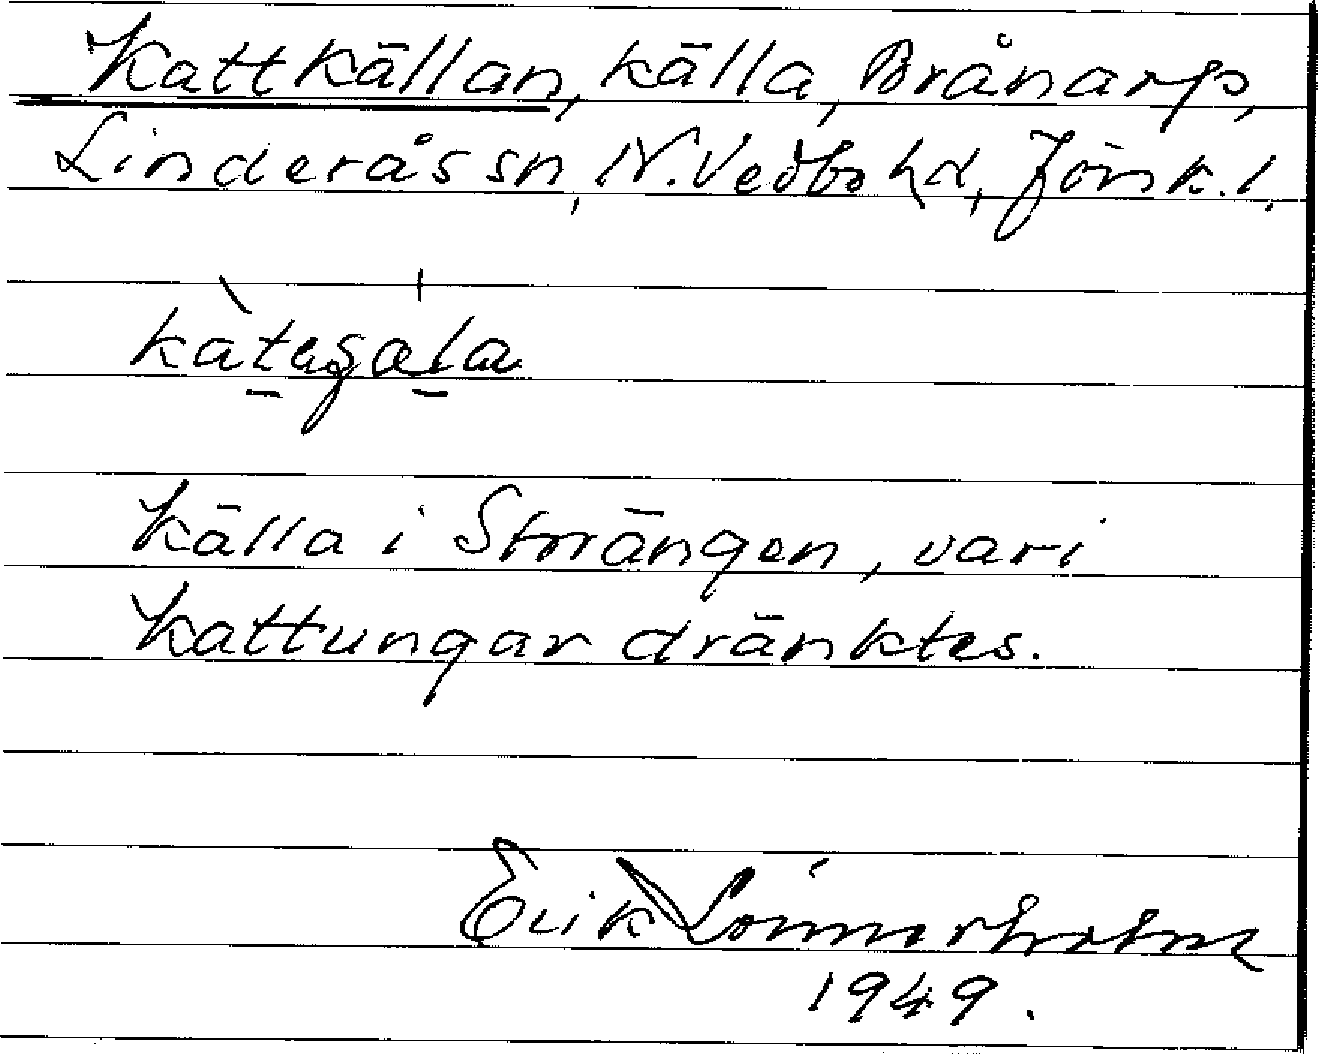 Kattkällan, källa, Brånarp,
Linderås sn, N. Vedbo hd, Jönk. l.
Källa i Storängen, vari
kattungar dränktes.
Erik Lönnerholm
1949.